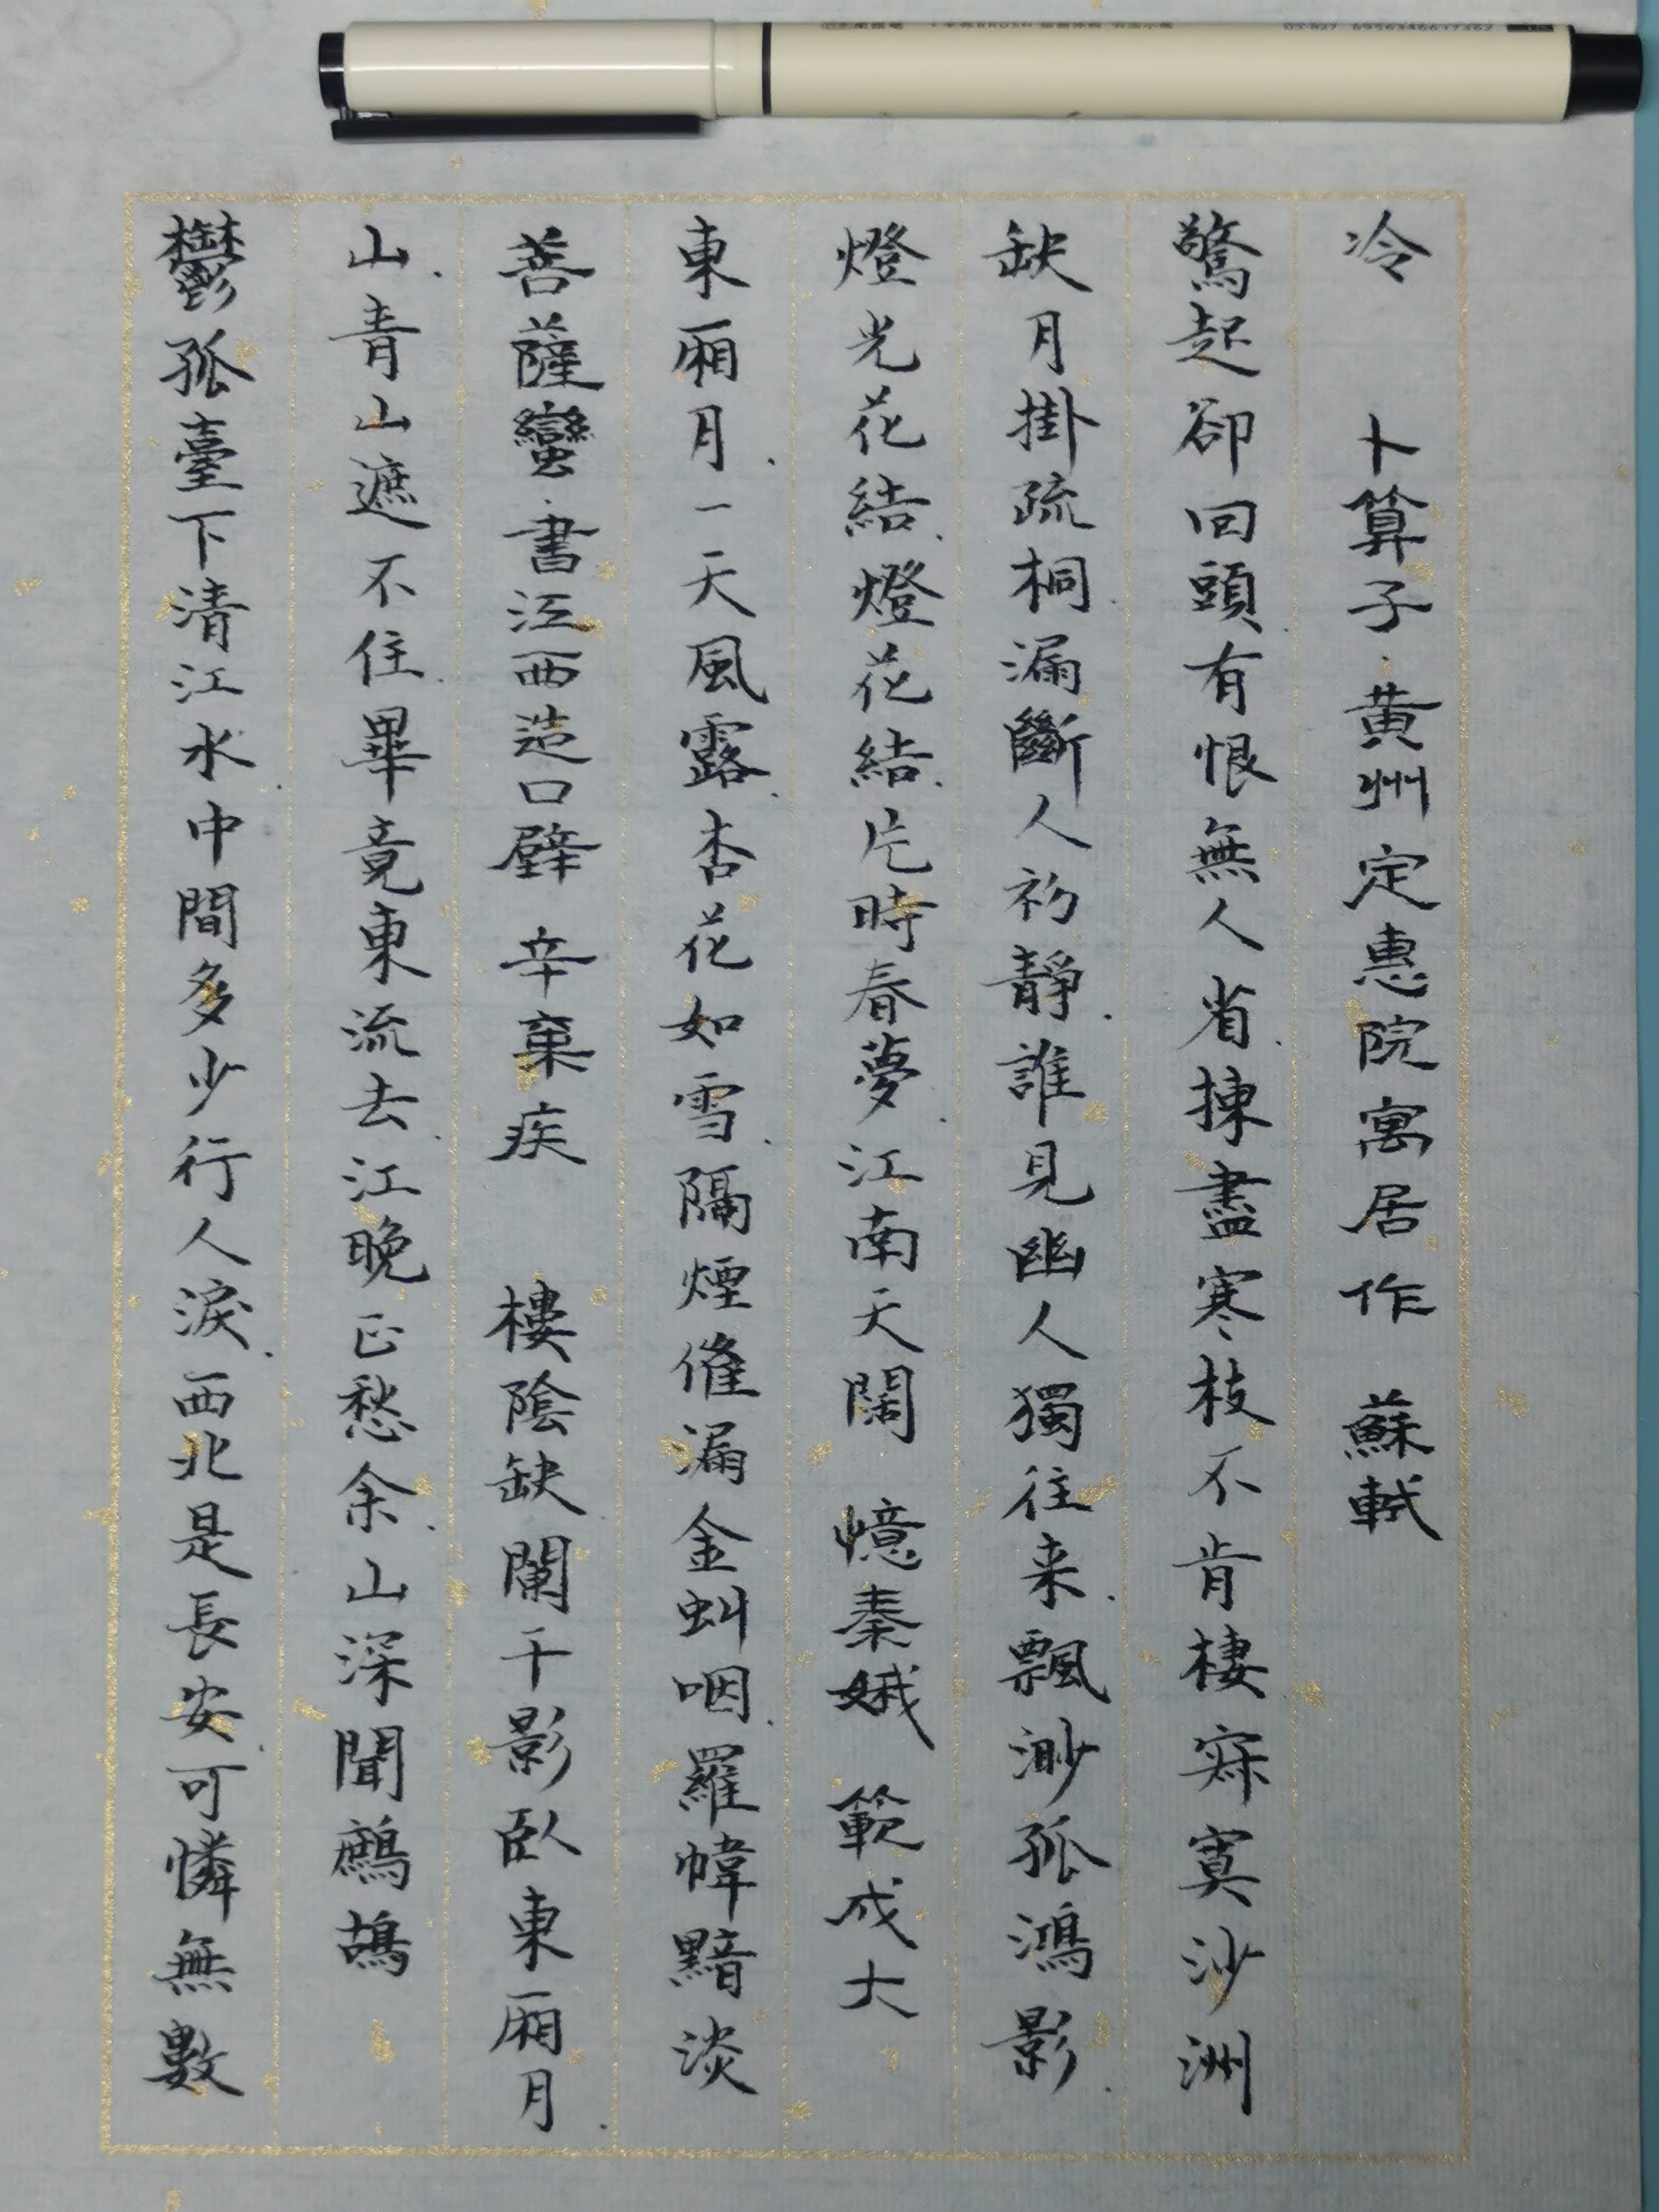 鬱孤臺下清江水.中間多少行人淚.西北是長安.可憐無數
山.青山遮不住.畢竟東流去.江晚正愁余.山深聞鷓鴣
菩薩蠻·書江西造口壁 辛棄疾 樓陰缺闌干影臥東廂月.
東廂月.一天風露.杏花如雪.隔煙催漏金虯咽.羅幃黯淡
燈光花結.燈花結.片時春夢.江南天闊 憶秦娥 範成大
缺月掛疏桐.漏斷人初靜.誰見幽人獨往来.飄渺孤鴻影.
驚起卻回頭.有恨無人省.揀盡寒枝不肯棲.寂寞沙洲
冷 卜算子·黄州定惠院寓居作 蘇軾